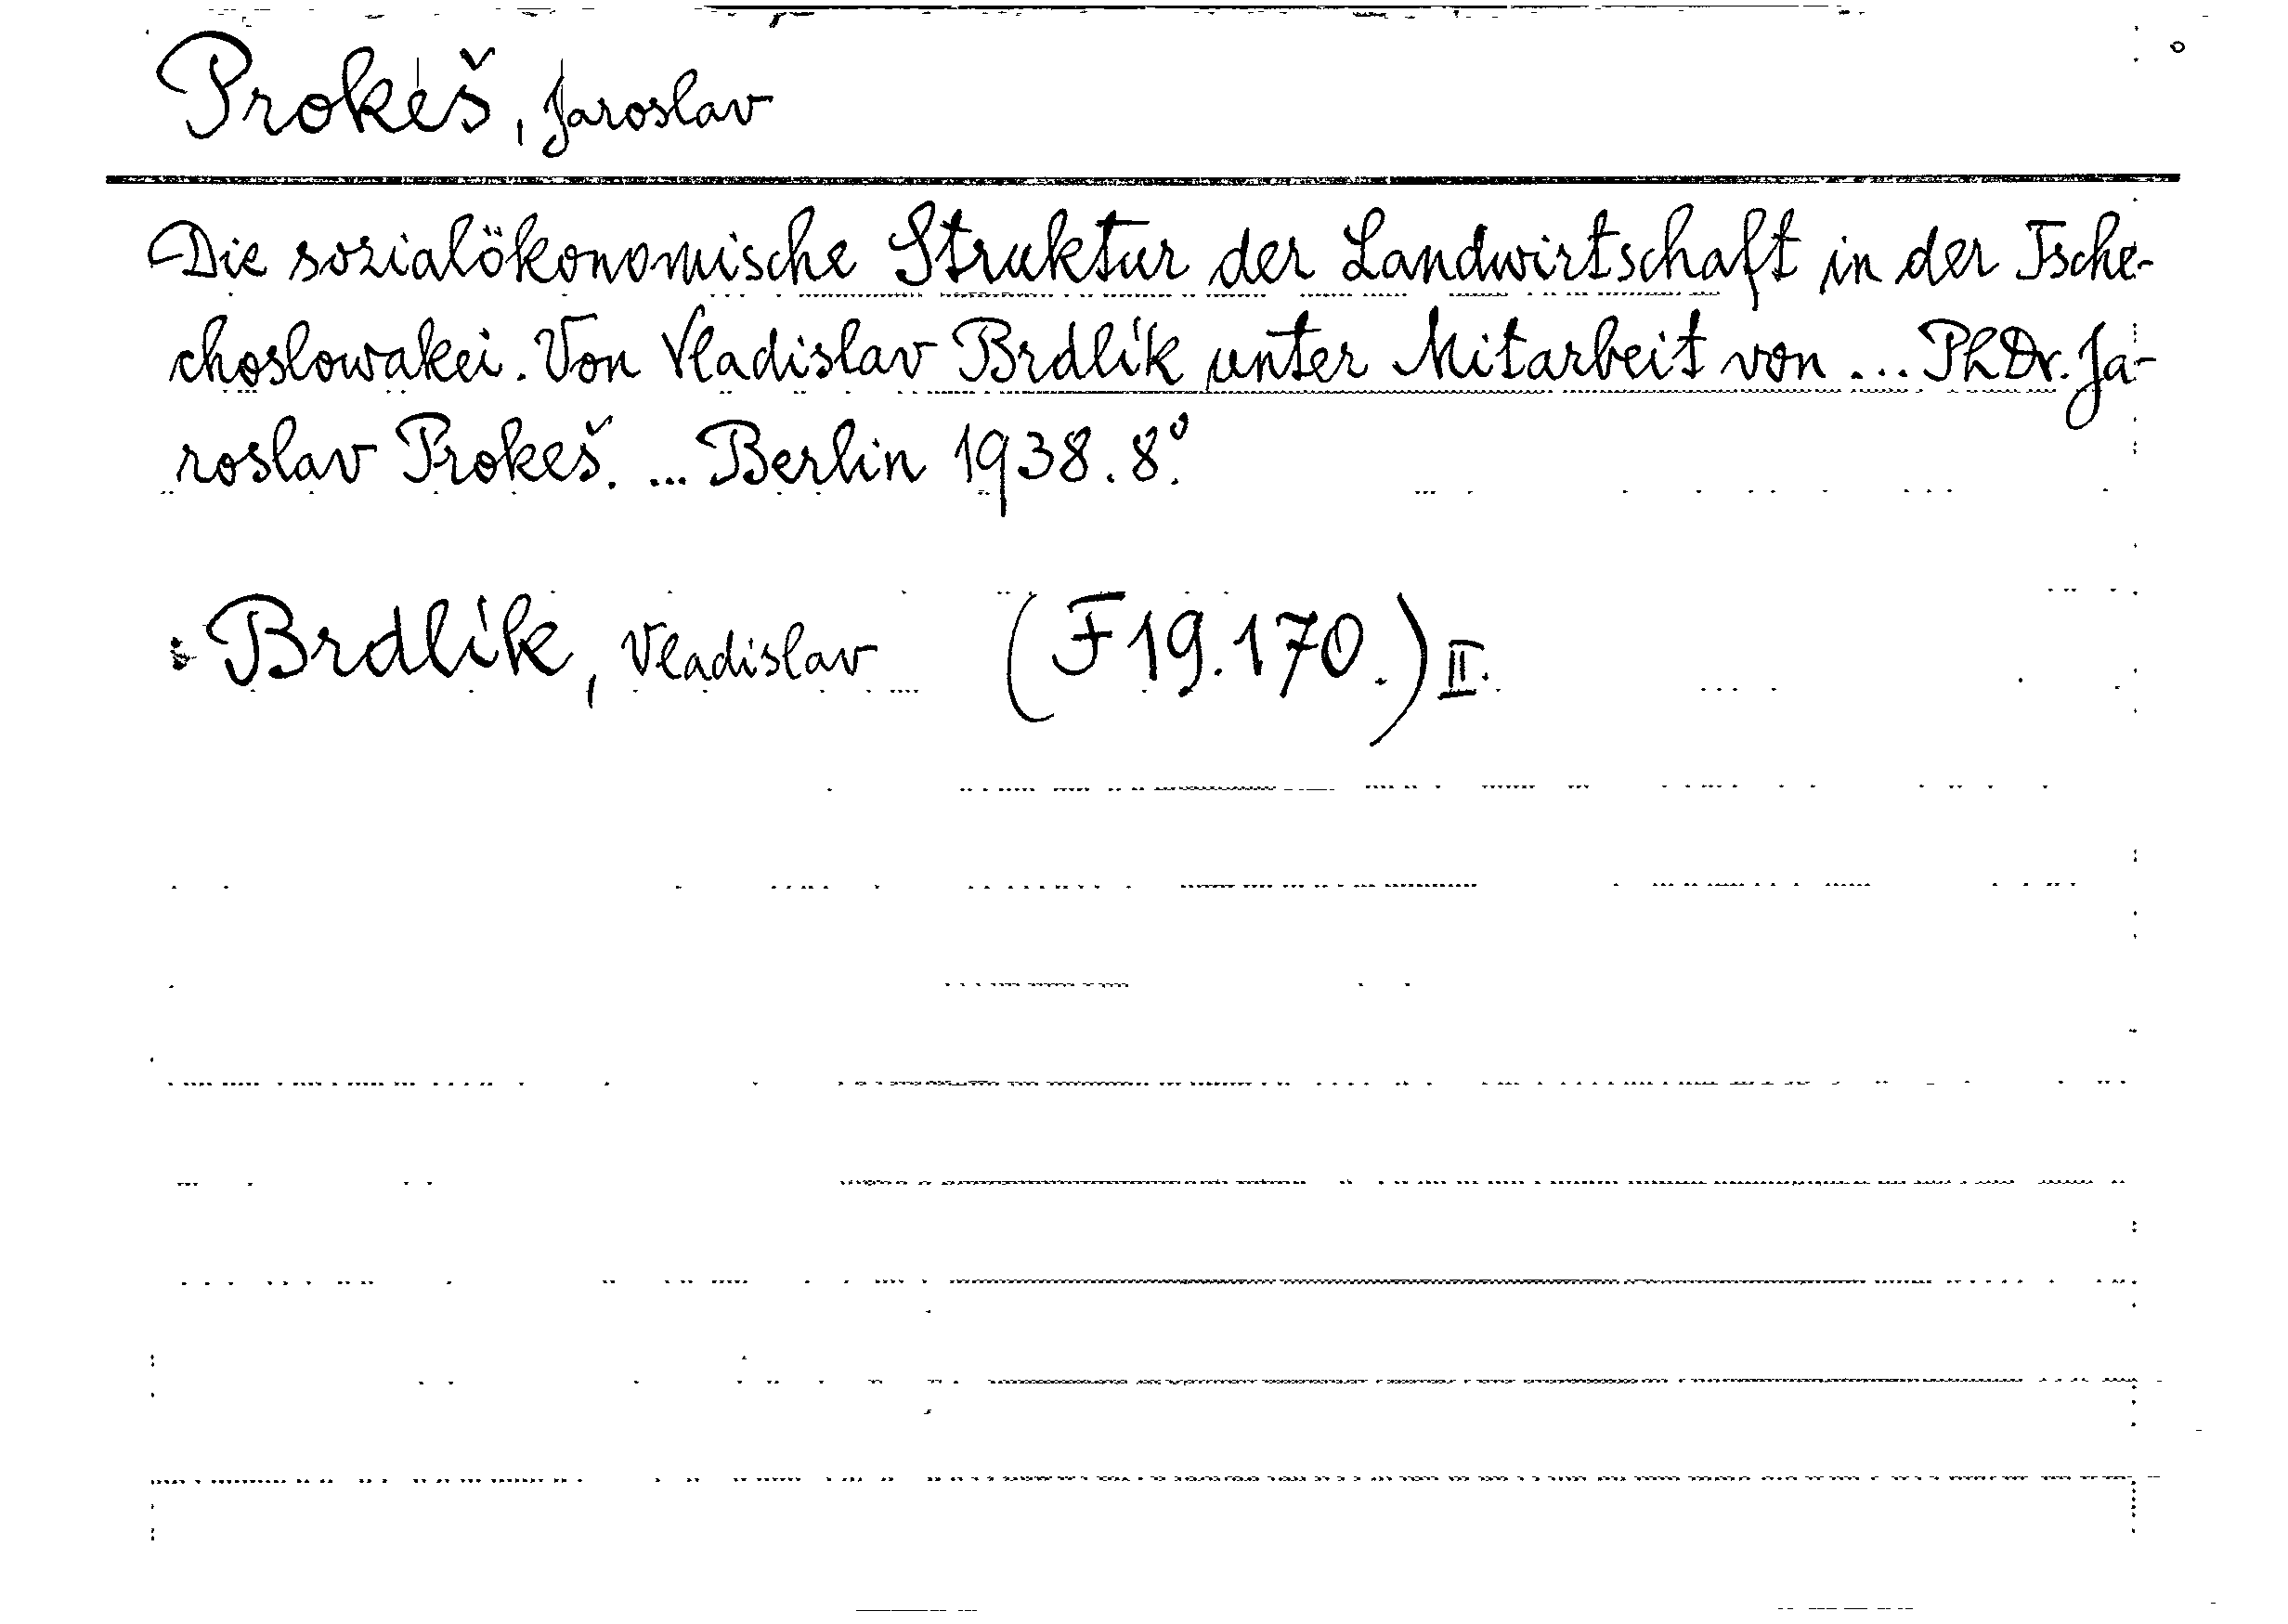 Prokeš, Jaroslav
Die sozialökonomische Struktur der Landwirtschaft in der Tsche-
choslowakei. Von Vladislav Brdlík unter Mitarbeit von ... PhDr. Ja-
roslav Prokeš. ... Berlin 1938. 8º.
: Brdlík, Vladislav (F 19.170.) II.